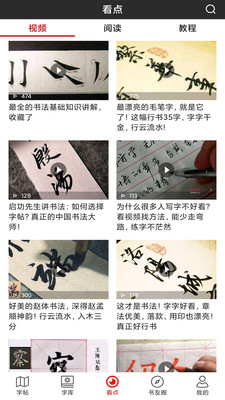 看点
视频
阅读
教程
474
113
最全的书法基础知识讲解,
收藏了
最漂亮的毛笔字,就是它
了!这幅行书35字,字字千
金,行云流水!
殷
汤
128
113
启功先生讲书法:如何选择
字帖?真正的中国书法大
师!
为什么很多人写字不好看?
看视频找方法,能少走弯
路,练字不茫然
300
217
好美的赵体书法,深得赵孟
頫神韵!行云流水,入木三
分
这才是书法!字字好看,章
法优美,落款、用印也漂亮!
真正行书好字!
察
字帖
字库
看点
书友圈
我的